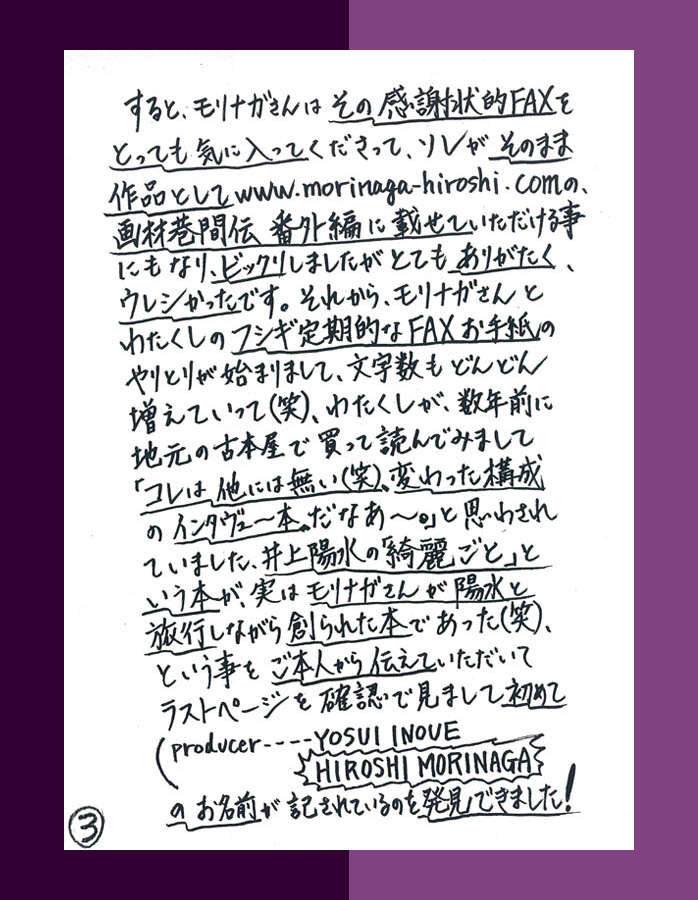 すると、モリナガさんは その 感謝状的FAXを
とっても 気に入ってくださって、ソレが そのまま
作品として www.morinaga-hiroshi.comの、
画材巷間伝 番外編に 載せていただける事
にも なり、ビックリしましたが とても ありがたく、
ウレシかったです。それから、モリナガさん と
わたくしの フシギ定期的な FAX お手紙の
やりとりが 始まりまして、文字数も どんどん
増えていって(笑)、わたくしが、数年前に
地元の古本屋で 買って 読んでみまして
「コレは 他には無い(笑)、変わった 構成
の インタヴュ〜本、だなあ〜。」と 思わされ
ていました、井上陽水の「綺麗ごと」と
いう本が、実は モリナガさん が 陽水と
旅行しながら 創られた本で あった(笑)、
という事を ご本人から 伝えていただいて
ラストページを 確認で 見まして 初めて
(producer----YOSUI INOUE
HIROSHI MORINAGA
の お名前が 記されているのを 発見できました!
③